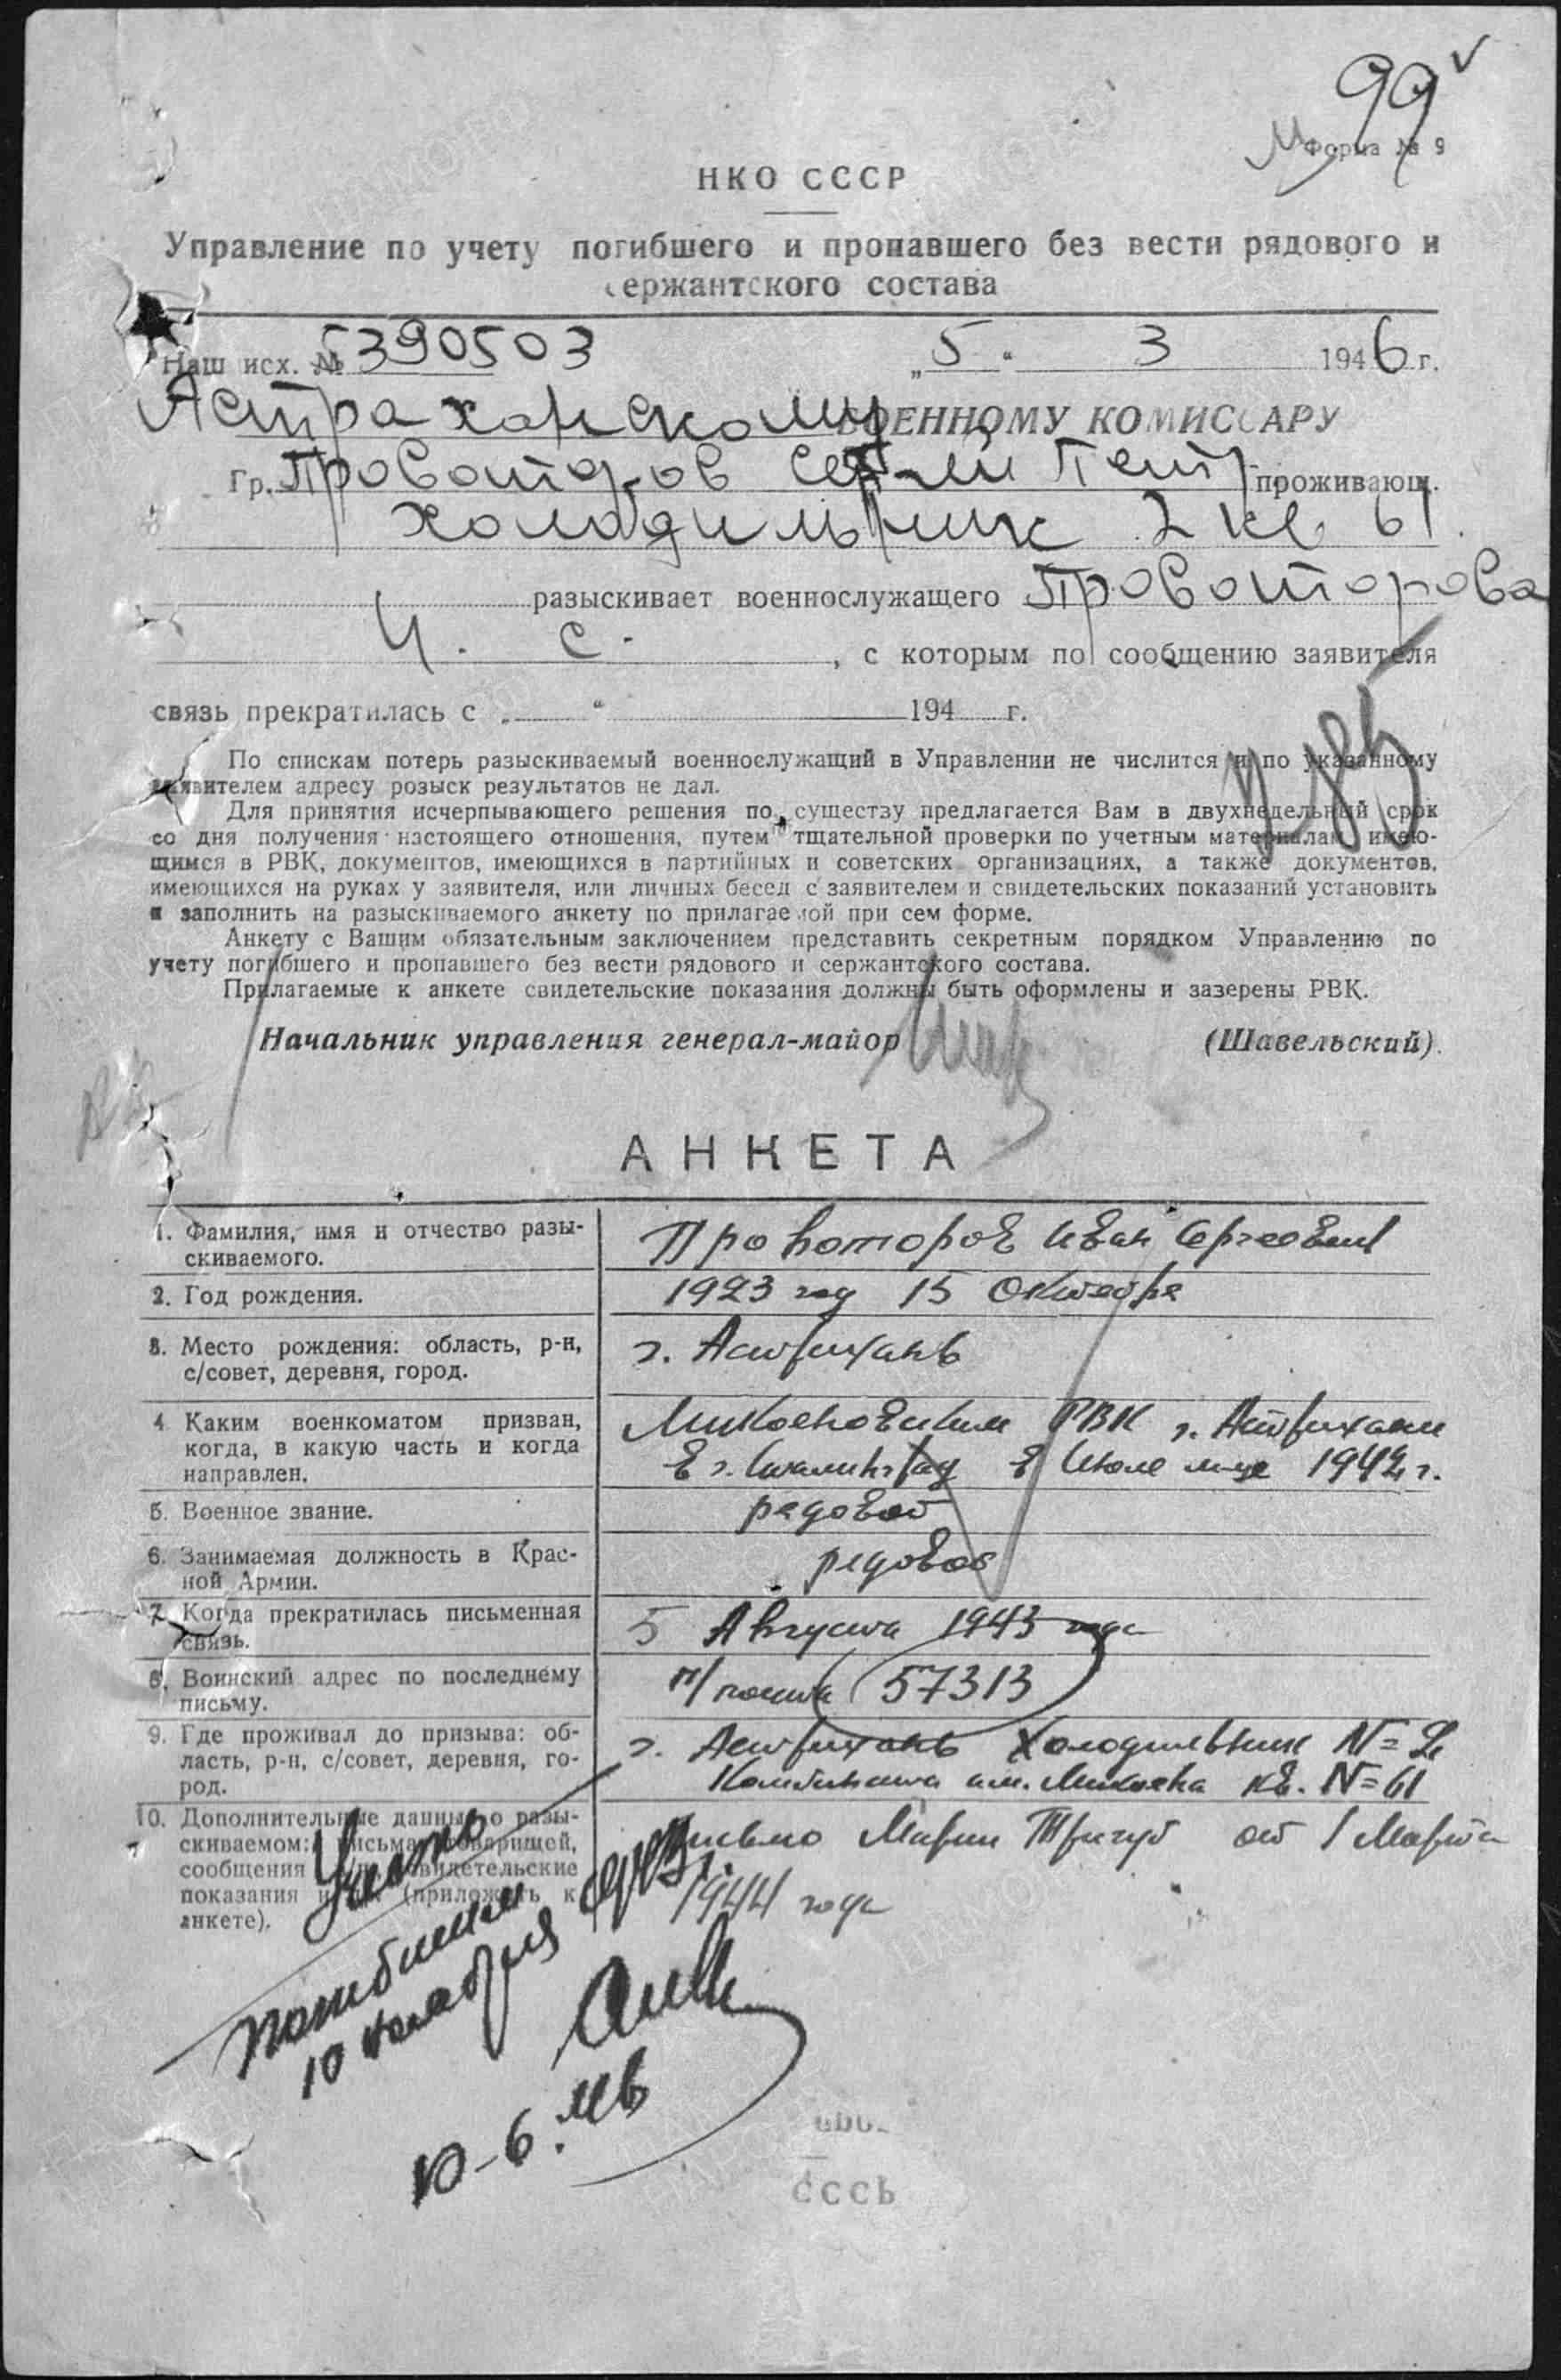 99
Форма № 9
НКО СССР
Управление по учету погибшего и пропавшего без вести рядового и
сержантского состава
Наш исх. № 5390503 „5“ 3 1946 г.
Астраханскому ВОЕННОМУ КОМИССАРУ
Гр. Провоторов Сергей Петр проживающ.
холодильник 2 кв 61
разыскивает военнослужащего Провоторова
И. С. , с которым по сообщению заявителя
связь прекратилась с „ “ 194 г.
По спискам потерь разыскиваемый военнослужащий в Управлении не числится и по указанному
заявителем адресу розыск результатов не дал.
Для принятия исчерпывающего решения по существу предлагается Вам в двухнедельный срок
со дня получения настоящего отношения, путем тщательной проверки по учетным материалам, имею-
щимся в РВК, документов, имеющихся в партийных и советских организациях, а также документов,
имеющихся на руках у заявителя, или личных бесед с заявителем и свидетельских показаний установить
и заполнить на разыскиваемого анкету по прилагаемой при сем форме.
Анкету с Вашим обязательным заключением представить секретным порядком Управлению по
учету погибшего и пропавшего без вести рядового и сержантского состава.
Прилагаемые к анкете свидетельские показания должны быть оформлены и заверены РВК.
Начальник управления генерал-майор (Шавельский).
АНКЕТА
1. Фамилия, имя и отчество разы-
скиваемого.
Провоторов Иван Сергеевич
2. Год рождения.
1923 год 15 Октября
3. Место рождения: область, р-н,
с/совет, деревня, город.
г. Астрахань
4 Каким военкоматом призван,
когда, в какую часть и когда
направлен.
Микояновским РВК г. Астрахани
в г. Сталинград в Июле м-це 1942 г.
5. Военное звание.
редовой
6. Занимаемая должность в Крас-
ной Армии.
редовой
7. Когда прекратилась письменная
связь.
5 Августа 1943 года
8. Воинский адрес по последнему
письму.
п/почта 57313
9. Где проживал до призыва: об-
ласть, р-н, с/совет, деревня, го-
род.
г. Астрахань Холодильник N=2
Комбината им. Микояна кв. N=61
10. Дополнительные данные о разы-
скиваемом: письма товарищей,
сообщения свидетельские
показания (приложить к
анкете).
письмо Марии Тригуб от 1 Марта
1944 года
Учтен
погибшим
10 ноября 43 г.
10-6.
СССР